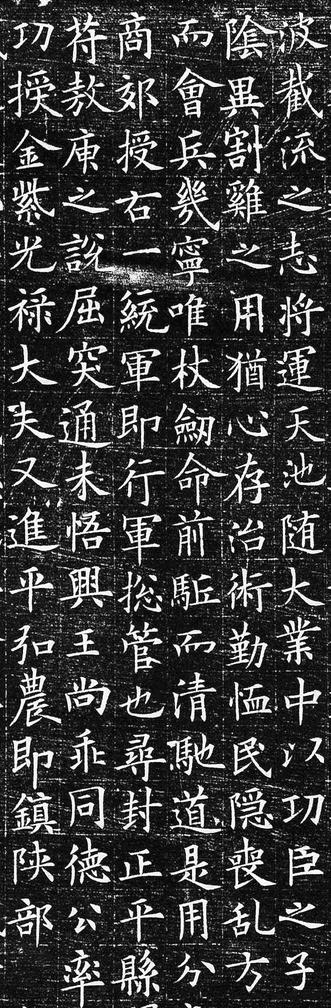 波截流之志將運天池随大業中以功臣之子
陰異割雞之用猶心存治術勤恤民隐喪乱方
而會兵幾寧唯杖劒命前駈而清馳道是用分
商郊授右一統軍即行軍捴管也尋封正平縣
苻敖庾之說屈突通未悟興王尚乖同德公率
功授金紫光禄大夫又進平弘農即鎮陝部